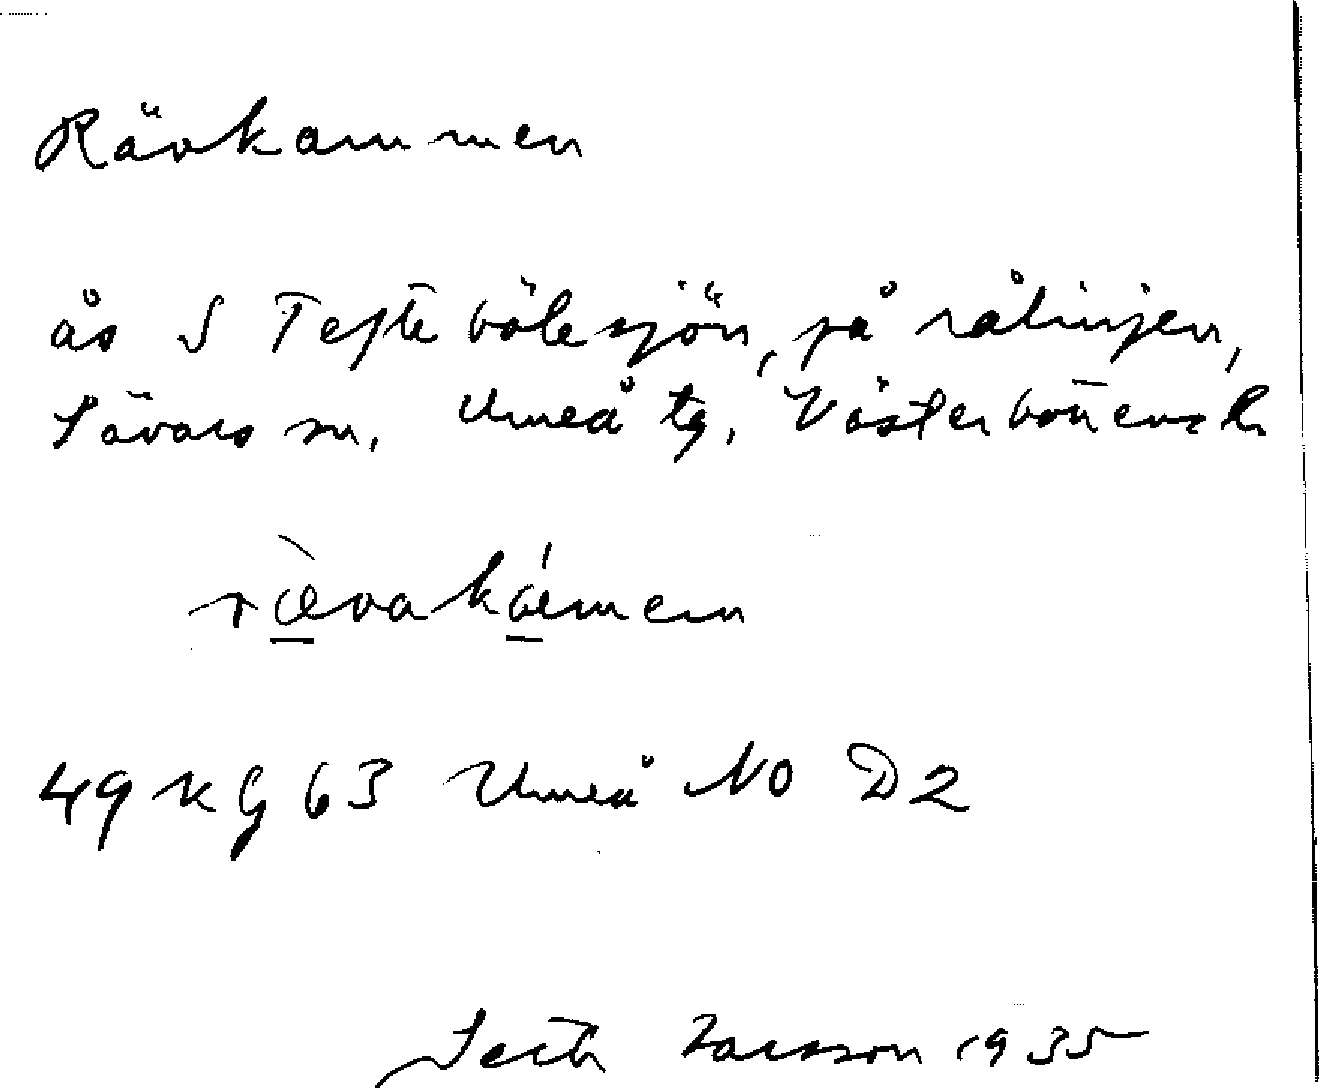 Rävkammen
ås S Teftebölesjön, på rålinjen,
Sävars sn, Umeå tg, Västerbottens l.
rævakæmen
49 KG 63 Umeå NO D2
Seth Larsson 1935